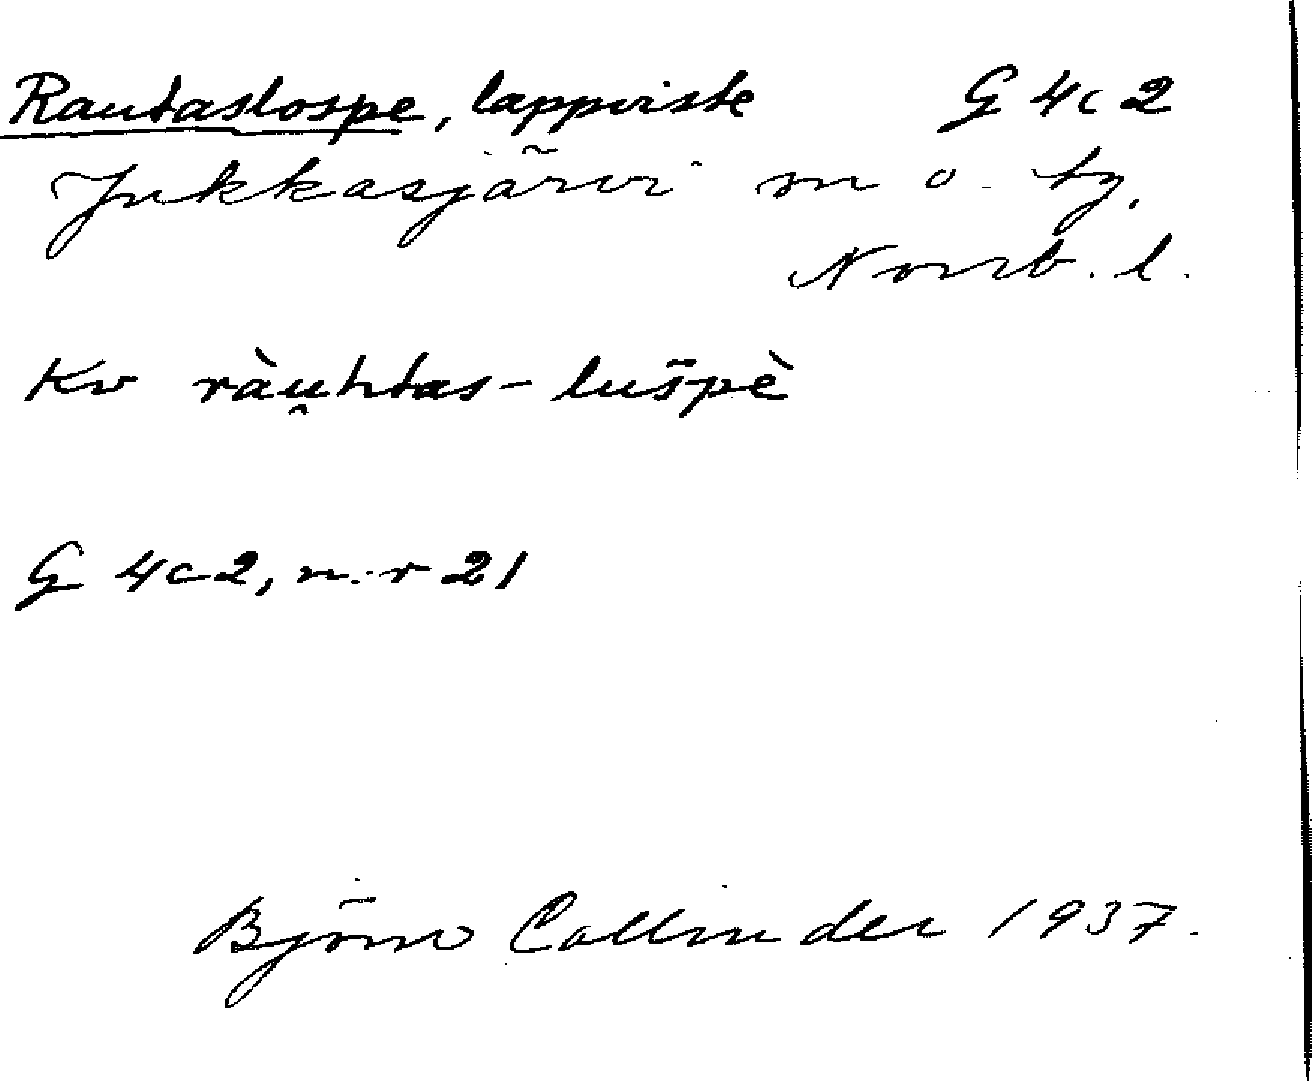 Rautaslospe, lappviste G 4c2
Jukkasjärvi sn o. tg.
Norrb. l.
Kv ràu̯htas-lušpè
G 4c2, n:r 21
Björn Collinder 1937.